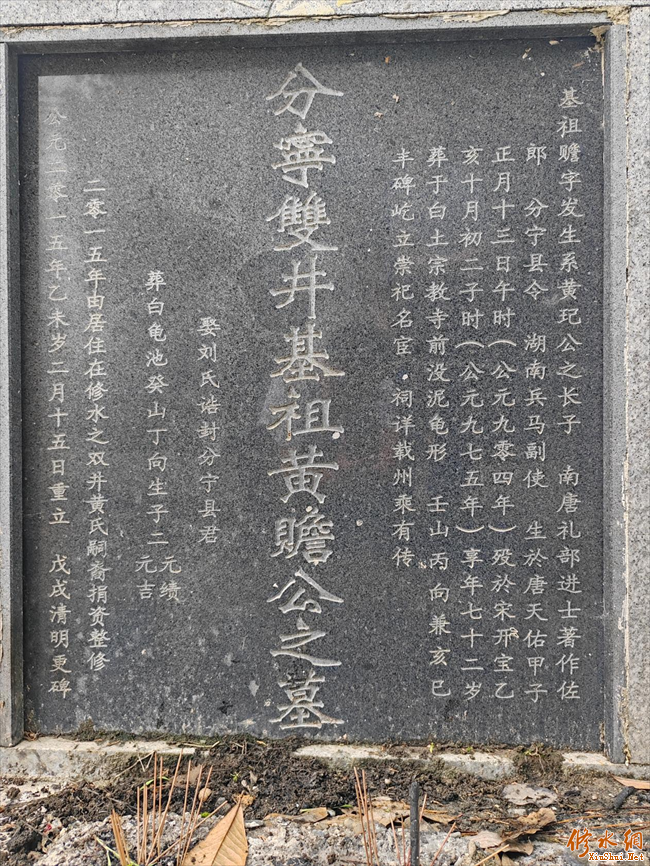 基祖赡字发生系黄玘公之长子 南唐礼部进士著作佐
郎 分宁县令 湖南兵马副使 生於唐天佑甲子
正月十三日午时(公元九零四年)殁於宋开宝乙
亥十月初二子时(公元九七五年)享年七十二岁
葬于白土宗教寺前没泥龟形 壬山丙向兼亥巳
丰碑屹立崇祀名宦·祠详载州乘有传
分寧雙井基祖黄赡公之墓
娶刘氏诰封分宁县君
葬白龟池癸山丁向生子二 元绩
元吉
二零一五年由居住在修水之双井黄氏嗣裔捐资整修
公元二零一五年乙未岁二月十五日重立 戊戌清明更碑
修水網
XiuShui.Net